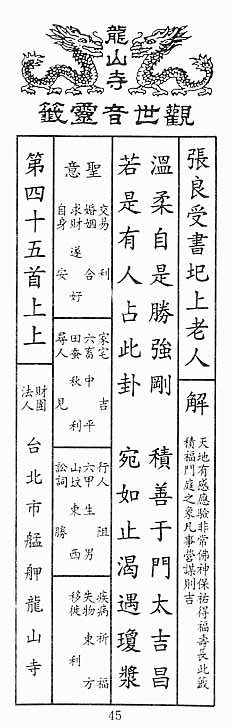 龍山寺
觀世音靈籤
張良受書圯上老人
解
天地有感應驗非常佛神保祐得福壽長此籤
積福門庭之象凡事營謀則吉
溫柔自是勝強剛 積善于門太吉昌
若是有人占此卦 宛如止渴遇瓊漿
聖意
交易 利
婚姻 合
求財 遂 好
自身 安
家宅 吉
六畜 中 平
田蚕 秋 利
尋人 見
行人 阻
六甲 生 男
山墳 東 西
訟詞 勝
疾病 祈 福
失物 東 方
移徙 利
第四十五首上上
財團
法人
台北市艋舺龍山寺
45